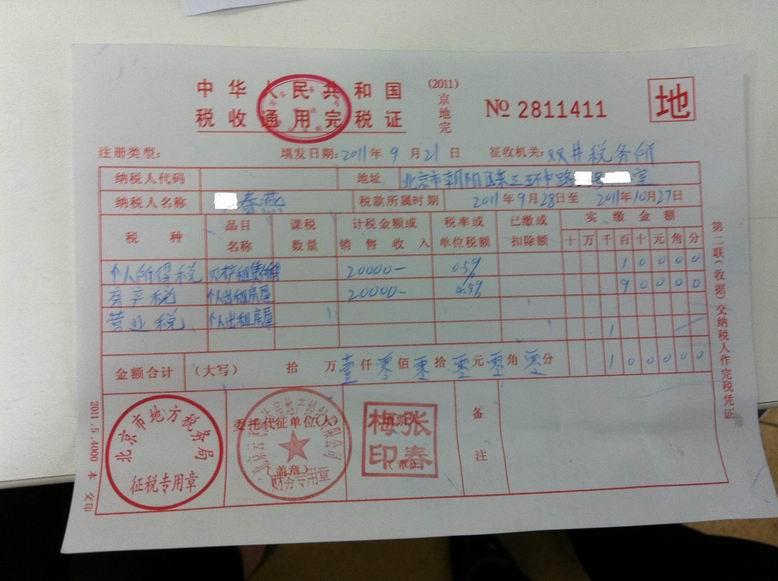 中华人民共和国
税收通用完税证
(2011)
京地完
№ 2811411
地
注册类型:
填发日期: 2011年 9 月 21 日
征收机关: 双井税务所
纳税人代码
地址 北京市朝阳区东三环中路 号 室
纳税人名称 春燕
税款所属时期 2011年9月28日至 2011年10月27日
税 种
品目名称
课税数量
计税金额或销售收入
税率或单位税额
已缴或扣除额
实缴金额
十 万 千 百 十 元 角 分
个人所得税 20000- 0.5% 1 0 0 0 0
房产税 个人出租房屋 20000- 4.5% 9 0 0 0 0
营业税 个人出租房屋
金额合计 (大写) 拾 万 壹 仟 零 佰 零 拾 零 元 零 角 零 分 1 0 0 0 0 0
北京市地方税务局
征税专用章
委托代征单位(人)
(盖章)
财务专用章
张春梅印
备注
第二联(收据)交纳税人作完税凭证
2011.5.4000 本